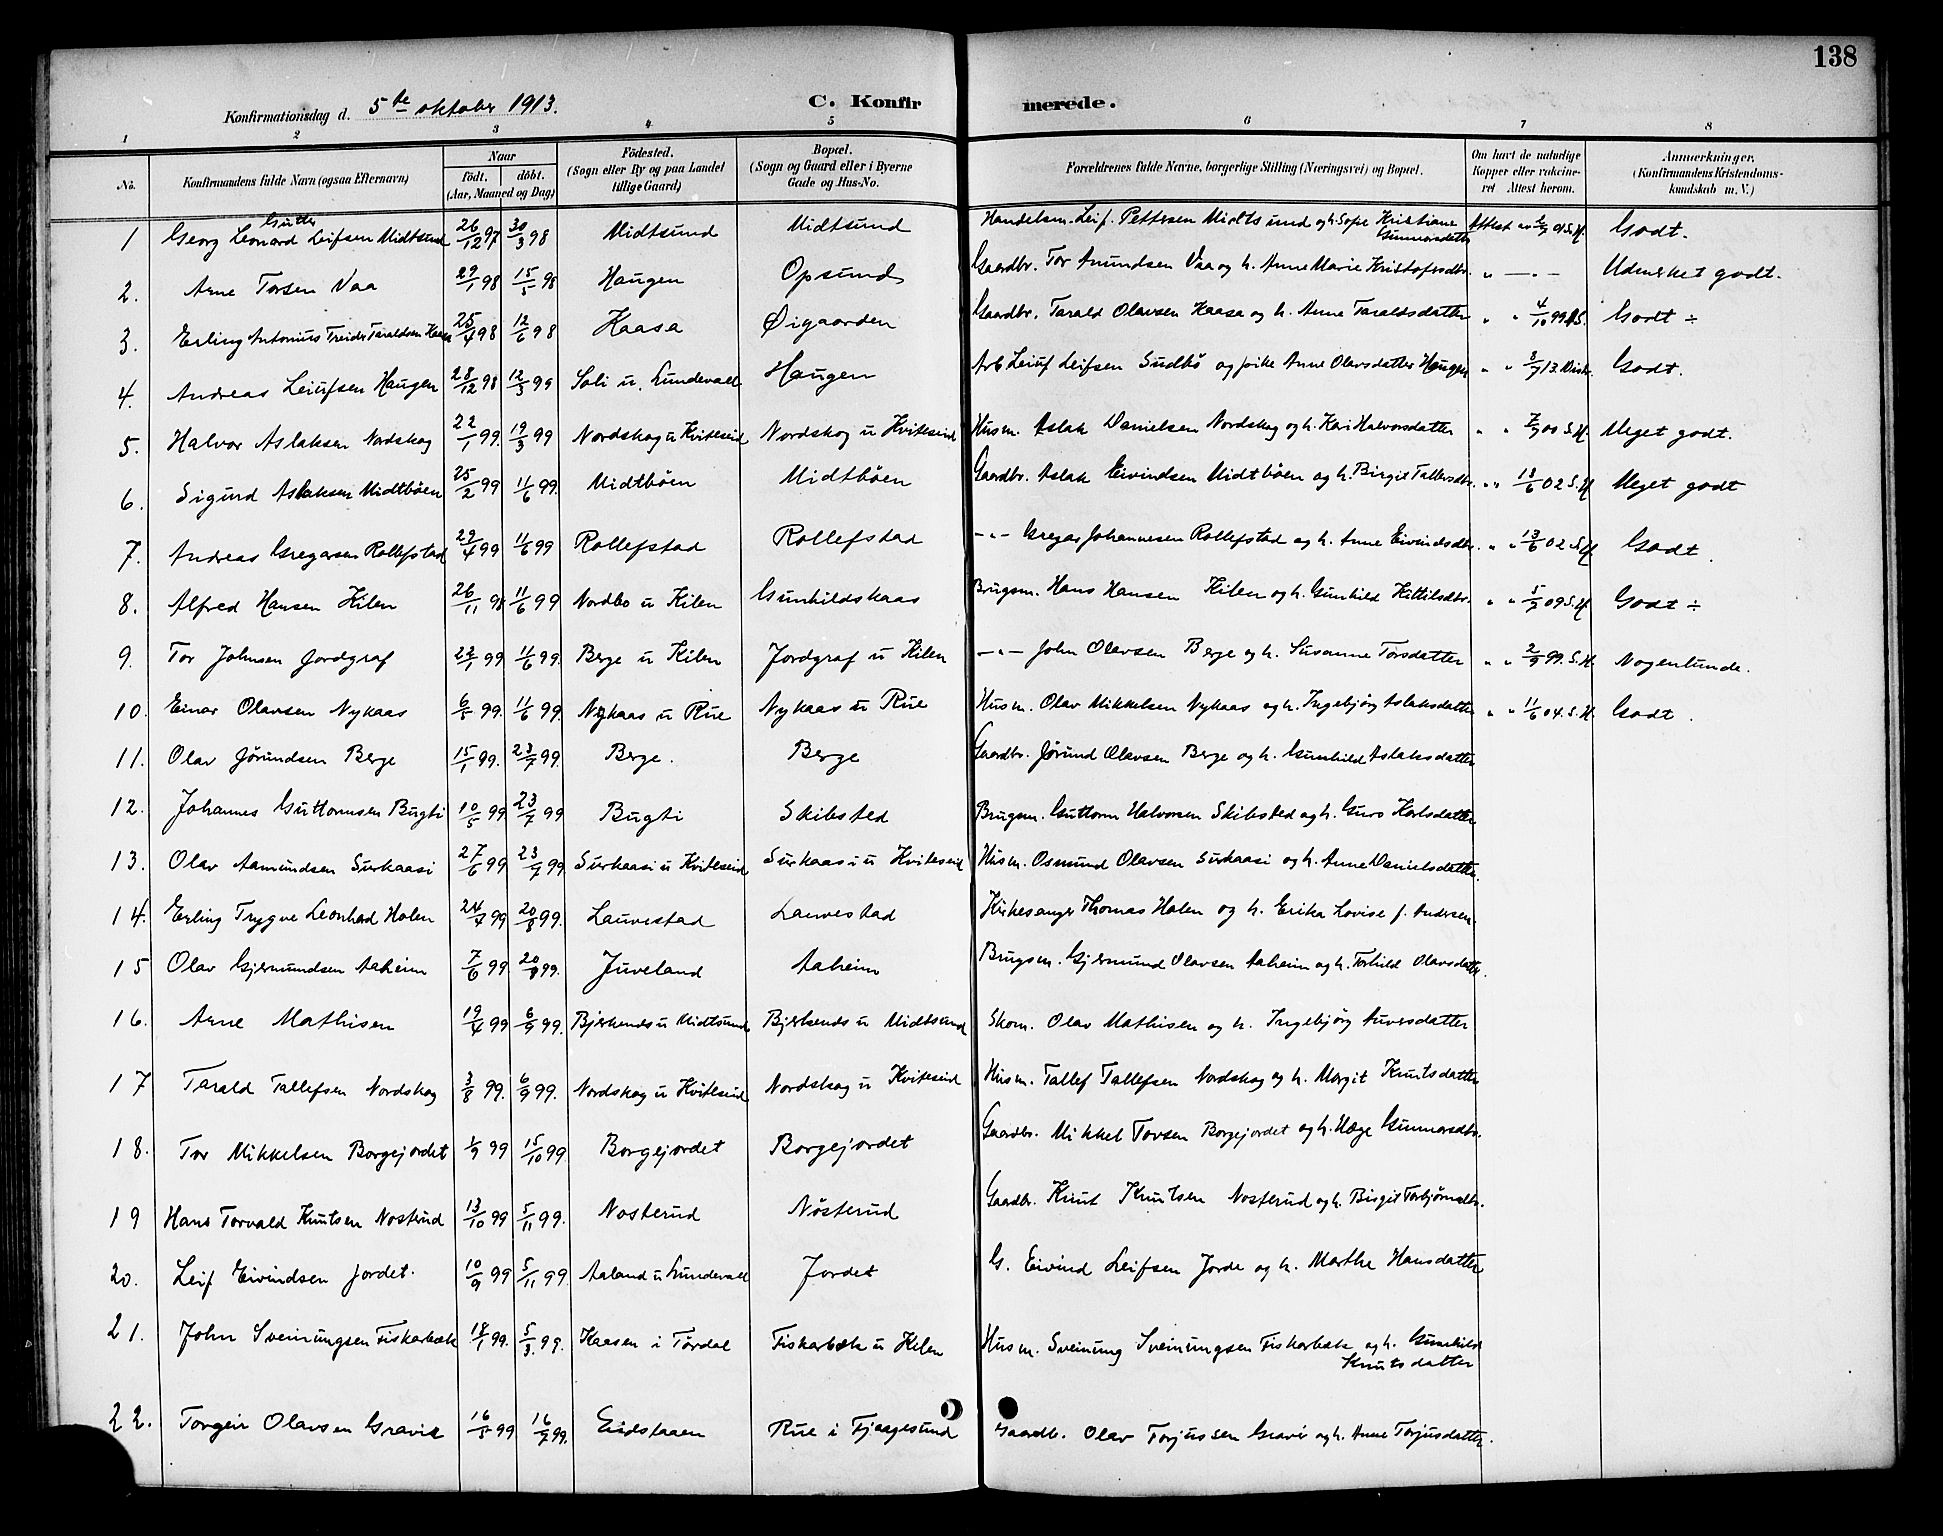 138
Konfirmationsdag d. 5te oktober 1913. C. Konfirmerede.
1 2 3 4 5 6 7 8
No. Konfirmandens fulde Navn (ogsaa Efternavn) Naar födt. döbt. (Aar, Maaned og Dag) Födested. (Sogn eller By og paa Landet tillige Gaard) Bopæl. (Sogn og Gaard eller i Byerne Gade og Hus-No. Forældrenes fulde Navne, borgerlige Stilling (Næringsvei) og Bopæl. Om havt de naturlige Kopper eller vakcineret Attest herom. Anmærkninger. (Konfirmandens Kristendomskundskab m. V.)
Gutter
1 Georg Leonard Leifsen Midtsund 26/12 97 30/3 98 Midtsund Midtsund Handelsm. Leif Pettersen Midtsund og h. Sofie Kristiane Gunnarsdatter Attest av 2/7 01 S.H. Godt.
2. Arne Torsen Vaa 29/1 98 15/5 98 Haugen Opsund Gaardbr. Tor Anundsen Vaa og h. Anne Marie Kristofersdtr. " — " — Udmerket godt.
3. Erling Antonius Treider Taraldsen Haasa 25/4 98 12/6 98 Haasa Øigaarden Gaardbr. Tarald Olavsen Haasa og h. Anne Taraldsdatter " " 4/10 99 Godt ÷
4. Andreas Leiufsen Haugen 28/12 98 12/3 99 Soli u. Lundevall Haugen Arb Leiuf Leifsen Sudbö og pike Anne Olavsdatter Haugen " " 8/7 13. Distr. Godt.
5. Halvor Aslaksen Nordskog 22/1 99. 19/3 99 Nordskog u Kviteseid Nordskog u Kviteseid Husm. Aslak Danielsen Nordskog og h. Kari Halvorsdatter " " 7/7 00 S.H. Meget godt.
6. Sigurd Aslaksen Midtböen 25/2 99 11/6 99. Midtböen Midtböen Gaardbr. Aslak Eivindsen Midtböen og h. Birgit Tallevsdtr. " " 13/6 02 S.H Meget godt
7. Andreas Gregarsen Rollefstad 22/4 99 11/6 99 Rollefstad Rollefstad — " — Gregar Johannesen Rollefstad og h. Anne Eivindsdtr. " " 13/6 02 S.H Godt.
8. Alfred Hansen Kilen 26/11 98 11/6 99 Nordbo u Kilen Gunhildskaas Brugsm. Hans Hansen Kilen og h. Gunhild Kittilsdtr. " " 5/7 09 S.H. Godt ÷
9. Tor Johnsen Jordgraf 22/1 99 11/6 99. Berge u Kilen Jordgraf u Kilen — " — John Olavsen Berge og h. Susanne Torsdatter " " 2/9 99. S.H. Nogenlunde.
10. Einar Olavsen Nykaas 6/5 99. 11/6 99. Nykaas u Rue Nykaas u Rue Husm. Olav Mikkelsen Nykaas og h. Ingebjörg Aslaksdatter " " 11/6 04. S.H. Godt.
11. Olav Jörundsen Berge 15/1 99. 23/7 99. Berge. Berge Gaardbr. Jörund Olavsen Berge og h. Gunhild Aslaksdatter
12. Johannes Guttormsen Bugti 10/5 99 23/7 99 Bugti Skibsted Brugsm. Guttorm Halvorsen Skibsted og h. Guro Karlsdatter
13. Olav Aamundsen Surkaasi 27/6 99 23/7 99. Surkaasi u Kviteseid Surkaasi u Kviteseid Husm. Osmund Olavsen Surkaasi og h. Anne Danielsdatter.
14. Erling Trygve Leonhard Holen 24/7 99 20/8 99. Lauvestad Lauvestad Kirkesanger Thomas Holen og h. Erika Lovise f. Andersen.
15 Olav Gjermundsen Aaheim 7/6 99. 20/8 99. Juveland Aaheim Brugsm. Gjermund Olavsen Aaheim og h. Torhild Olavsdatter.
16. Arne Mathisen 19/4 99 6/9 99. Bjerkends u Midtsund Bjerkends u Midtsund Skom. Olav Mathisen og h. Ingebjörg Auversdatter
17 Tarald Tallefsen Nordskog 3/8 99. 6/9 99. Nordskog u Kviteseid Nordskog u Kviteseid Husm. Tallef Tallefsen Nordskog og h. Margit Knutsdatter
18. Tor Mikkelsen Borgejordet 1/9 99 15/10 99. Borgejordet Borgejordet Gaardbr. Mikkel Torsen Borgejordet og h. Hæge Gunnarsdtr.
19 Hans Torvald Knutsen Nosterud 13/10 99 5/11 99. Nosterud Nösterud Gaardbr. Knut Knutsen Nosterud og h. Birgit Torbjörnsdtr.
20. Leif Eivindsen Jordet. 10/9 99 5/11 99. Aaland u Lundevall Jordet G. Eivind Leifsen Jorde og h. Marthe Hansdatter
21. John Sveinungsen Fiskarbæk 18/1 99. 5/3. 99. Kaasen i Tördal Fiskarbæk u Kilen Husm. Sveinung Sveinungsen Fiskarbæk og h. Gunhild Knutsdatter
22. Torgeir Olavsen Gravir 16/5 99 16/7 99. Eidstaaen Rue i Fjaagesund Gaardbr. Olav Torjussen Gravir og h. Anne Torjusdatter.